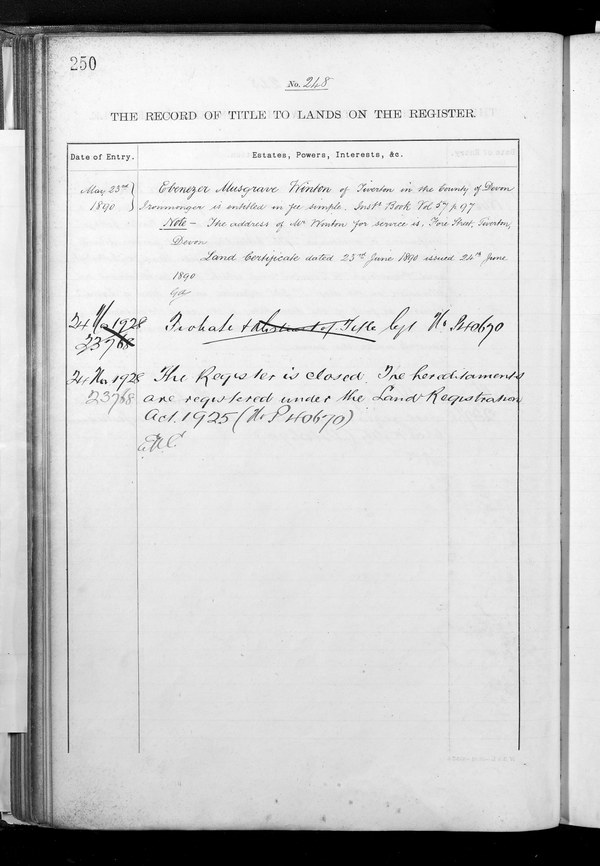 250
No. 248
THE RECORD OF TITLE TO LANDS ON THE REGISTER.
Date of Entry. Estates, Powers, Interests, &c.
May 23rd 1890 Ebenezer Musgrave Winton of Tiverton in the County of Devon
Ironmonger is entitled in fee simple. Inst. Book Vol 57 p. 97
Note - The address of Mr Winton for service is, Fore Street, Tiverton,
Devon
Land Certificate dated 23rd June 1890 issued 24th June
1890
24 1928 Probate & Abstract of Title P40670
23768
24 1928 The Register is closed. The hereditaments
23768 are registered under the Land Registration
Act. 1925 (No P40670)